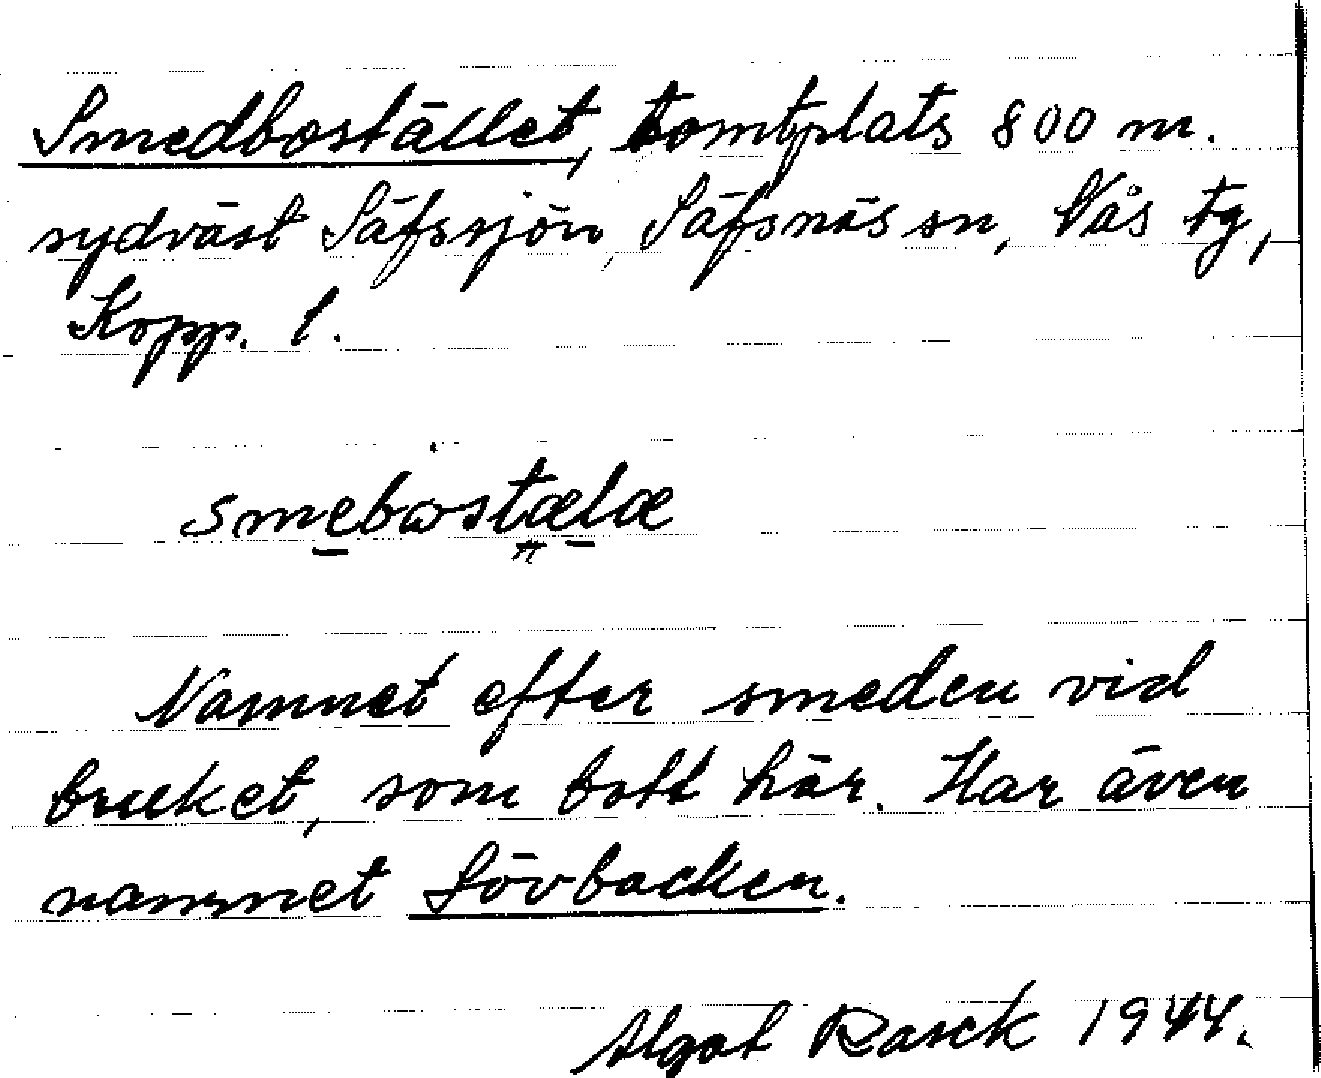 Smedbostället, tomtplats 800 m.
sydväst Säfssjön, Säfsnäs sn, Nås tg,
Kopp. l.
smebostælæ
Namnet efter smeden vid
bruket, som bott här. Har även
namnet Lövbacken.
Algot Rasck 1944.